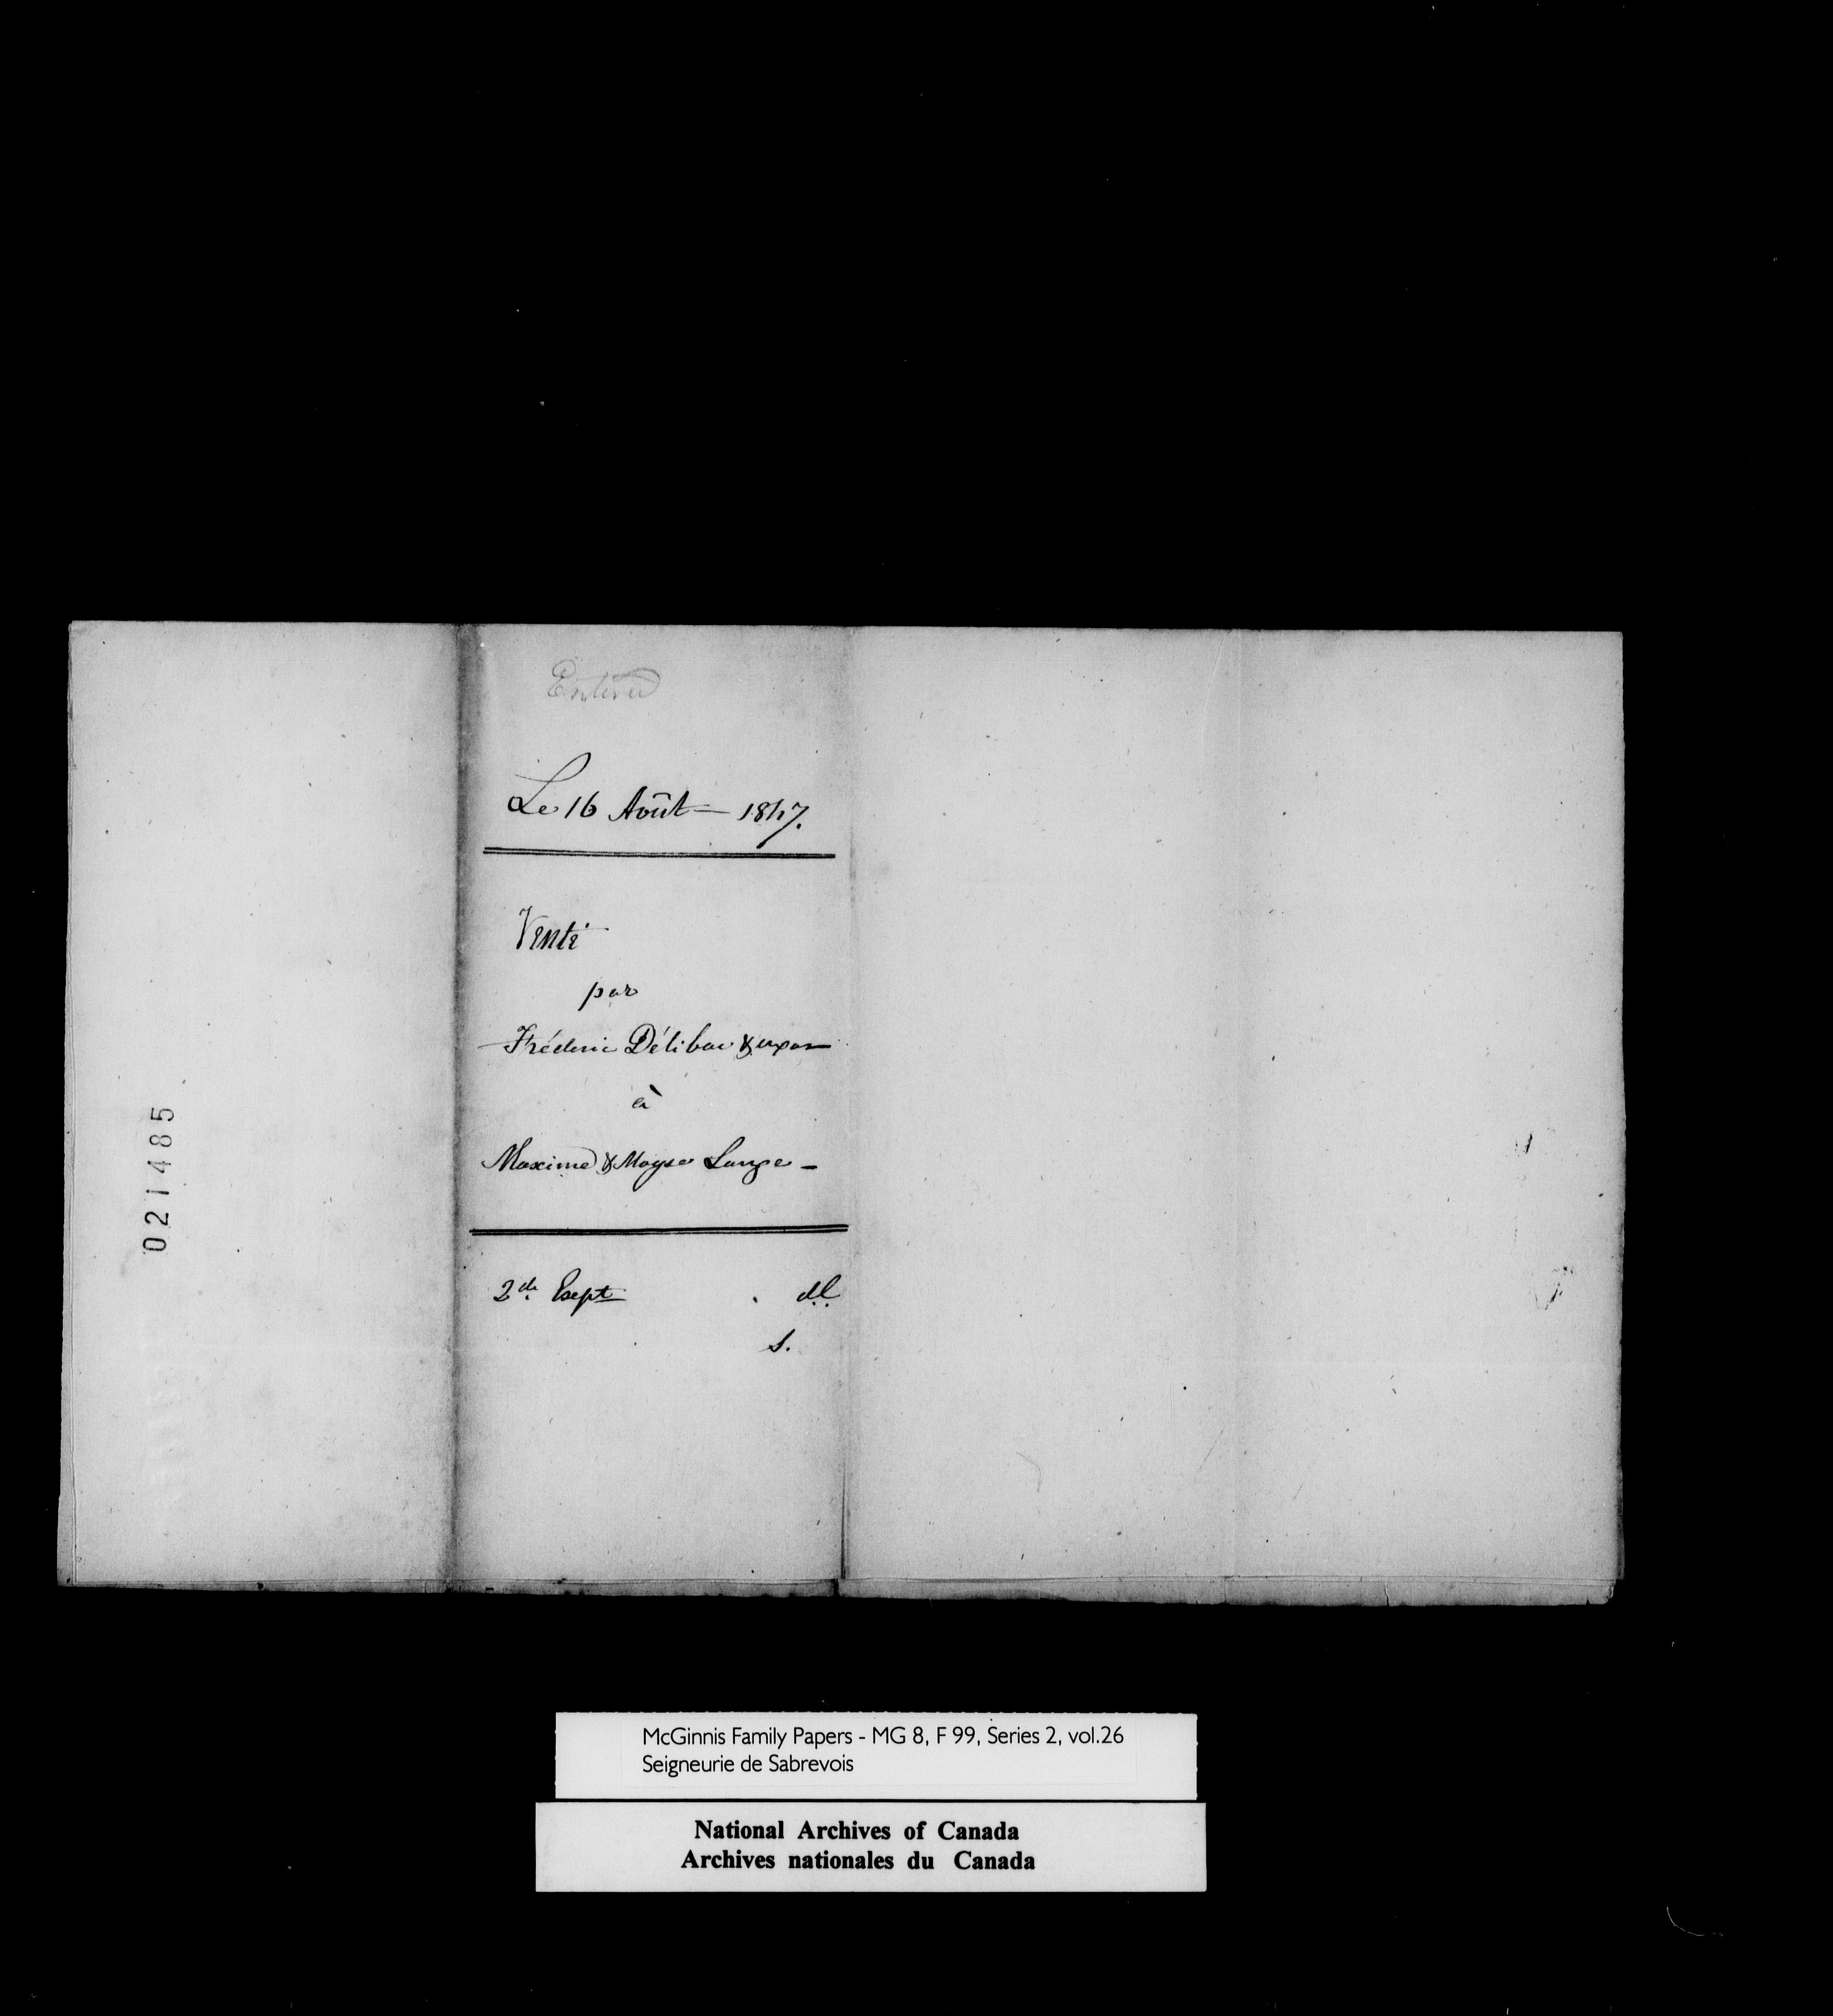 Entered
Le 16 Août — 1847.
Vente
par
Fréderic Délibac & uxor
à
Maxime & Moyse Lange —
2de Exept.
S.
021485
McGinnis Family Papers - MG 8, F 99, Series 2, vol.26
Seigneurie de Sabrevois
National Archives of Canada
Archives nationales du Canada